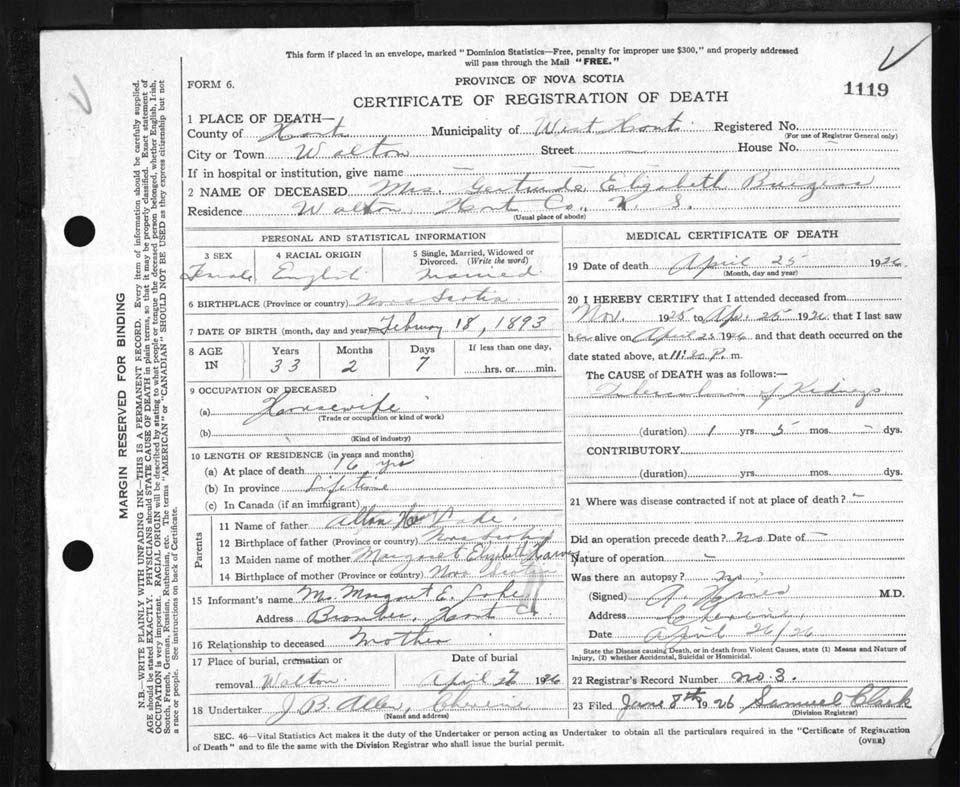 This form if placed in an envelope, marked "Dominion Statistics—Free, penalty for improper use $300," and properly addressed
will pass through the Mail "FREE."
FORM 6.
PROVINCE OF NOVA SCOTIA
CERTIFICATE OF REGISTRATION OF DEATH
1119
1 PLACE OF DEATH—
County of Hants Municipality of West Hants Registered No.
(For use of Registrar General only)
City or Town Walton Street — House No. —
If in hospital or institution, give name —
2 NAME OF DECEASED Mrs. Gertrude Elizabeth Burgess
Residence Walton, Hants Co., N. S.
(Usual place of abode)
PERSONAL AND STATISTICAL INFORMATION
3 SEX Female
4 RACIAL ORIGIN English
5 Single, Married, Widowed or Divorced. (Write the word) Married
6 BIRTHPLACE (Province or country) Nova Scotia
7 DATE OF BIRTH (month, day and year) February 18, 1893
8 AGE IN Years 33 Months 2 Days 7 If less than one day, hrs. or min.
9 OCCUPATION OF DECEASED
(a) Housewife
(Trade or occupation or kind of work)
(b)
(Kind of industry)
10 LENGTH OF RESIDENCE (in years and months)
(a) At place of death 16 yrs
(b) In province Lifetime
(c) In Canada (if an immigrant)
Parents
11 Name of father Allan
12 Birthplace of father (Province or country) Nova Scotia
13 Maiden name of mother Margaret Elizabeth Harvey
14 Birthplace of mother (Province or country) Nova Scotia
15 Informant's name Mrs. Margaret E.
Address Hants Co.
16 Relationship to deceased Mother
17 Place of burial, cremation or removal Walton
Date of burial April 1926
18 Undertaker J. B. Allen, Cheverie
(Name and address)
MEDICAL CERTIFICATE OF DEATH
19 Date of death April 25 1926
(Month, day and year)
20 I HEREBY CERTIFY that I attended deceased from
Nov. 1925 to Apr. 25 1926 that I last saw
her alive on April 25 1926 and that death occurred on the
date stated above, at 11:20 P. m.
The CAUSE of DEATH was as follows:—
Tuberculosis of Kidneys
(duration) 1 yrs. 5 mos. — dys.
CONTRIBUTORY
(duration) yrs. mos. dys.
21 Where was disease contracted if not at place of death? —
Did an operation precede death? No Date of —
Nature of operation —
Was there an autopsy? No
(Signed) M.D.
Address Cheverie
Date April 26/26
State the Disease causing Death, or in death from Violent Causes, state (1) Means and Nature of
Injury, (2) whether Accidental, Suicidal or Homicidal.
22 Registrar's Record Number No. 3.
23 Filed June 8th 1926 Samuel Clark
(Division Registrar)
SEC. 46—Vital Statistics Act makes it the duty of the Undertaker or person acting as Undertaker to obtain all the particulars required in the "Certificate of Registration
of Death" and to file the same with the Division Registrar who shall issue the burial permit.
(OVER)
MARGIN RESERVED FOR BINDING
N.B.—WRITE PLAINLY WITH UNFADING INK—THIS IS A PERMANENT RECORD. Every item of information should be carefully supplied.
AGE should be stated EXACTLY. PHYSICIANS should STATE CAUSE OF DEATH in plain terms, so that it may be properly classified. Exact statement of
OCCUPATION is very important. RACIAL ORIGIN will be described by stating to what people or tongue the deceased person belonged, whether English, Irish,
Scotch, French, German, Russian, Ruthenian, etc. The terms "AMERICAN" or "CANADIAN" SHOULD NOT BE USED as they express citizenship but not
a race or people. See instructions on back of Certificate.